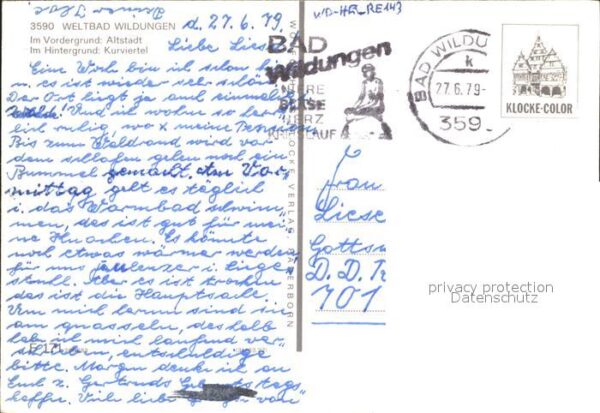 3590 WELTBAD WILDUNGEN
Im Vordergrund: Altstadt
Im Hintergrund: Kurviertel
d. 27.6.79
Liebe Liesel
Eine Woch bin ich schon hier
u. es ist wieder sehr schön.
Der Ort liegt ja auch einmalig
Und ich wohne so herr
lich ruhig, wo meine Pension
Bis zum Waldrand wird vor
dem schlafen gehen noch ein
Bummel gemacht. Am Vor
mittag geht es täglich
i. das Warmbad schwim
men, das ist gut für mei
ne Knochen. Es könnte
noch etwas wärmer werden,
für uns faulenzer i. Liege
stuhl. Aber es ist trocken
das ist die Hauptsache.
Um mich herum sind sie
am quasseln, deshalb
hab ich mich laufend ver
schrieben, entschuldige
bitte. Morgen denke ich an
Euch z. Gertruds Geburtstags
kaffee. Viele liebe Grüße von
WD-HR_RE143
BAD
Wildungen
HERZ
KREISLAUF
BAD WILDU
k
27.6.79-
359
KLOCKE-COLOR
KLOCKE VERLAG PADERBORN
Frau
Liese
Gotts
D. D. R
701
privacy protection
Datenschutz